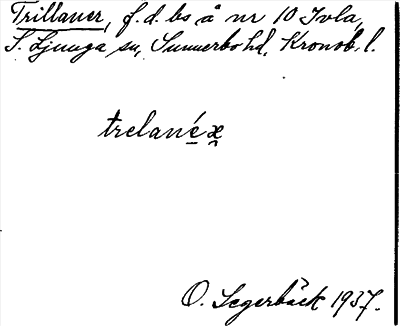 Trillaner, f. d. bs å nr 10 Ivla,
S. Ljunga sn, Sunnerbo hd, Kronob. l.
trelanéæ
O. Segerbäck 1937.